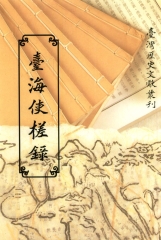 臺灣歷史文獻叢刊
臺海使槎錄